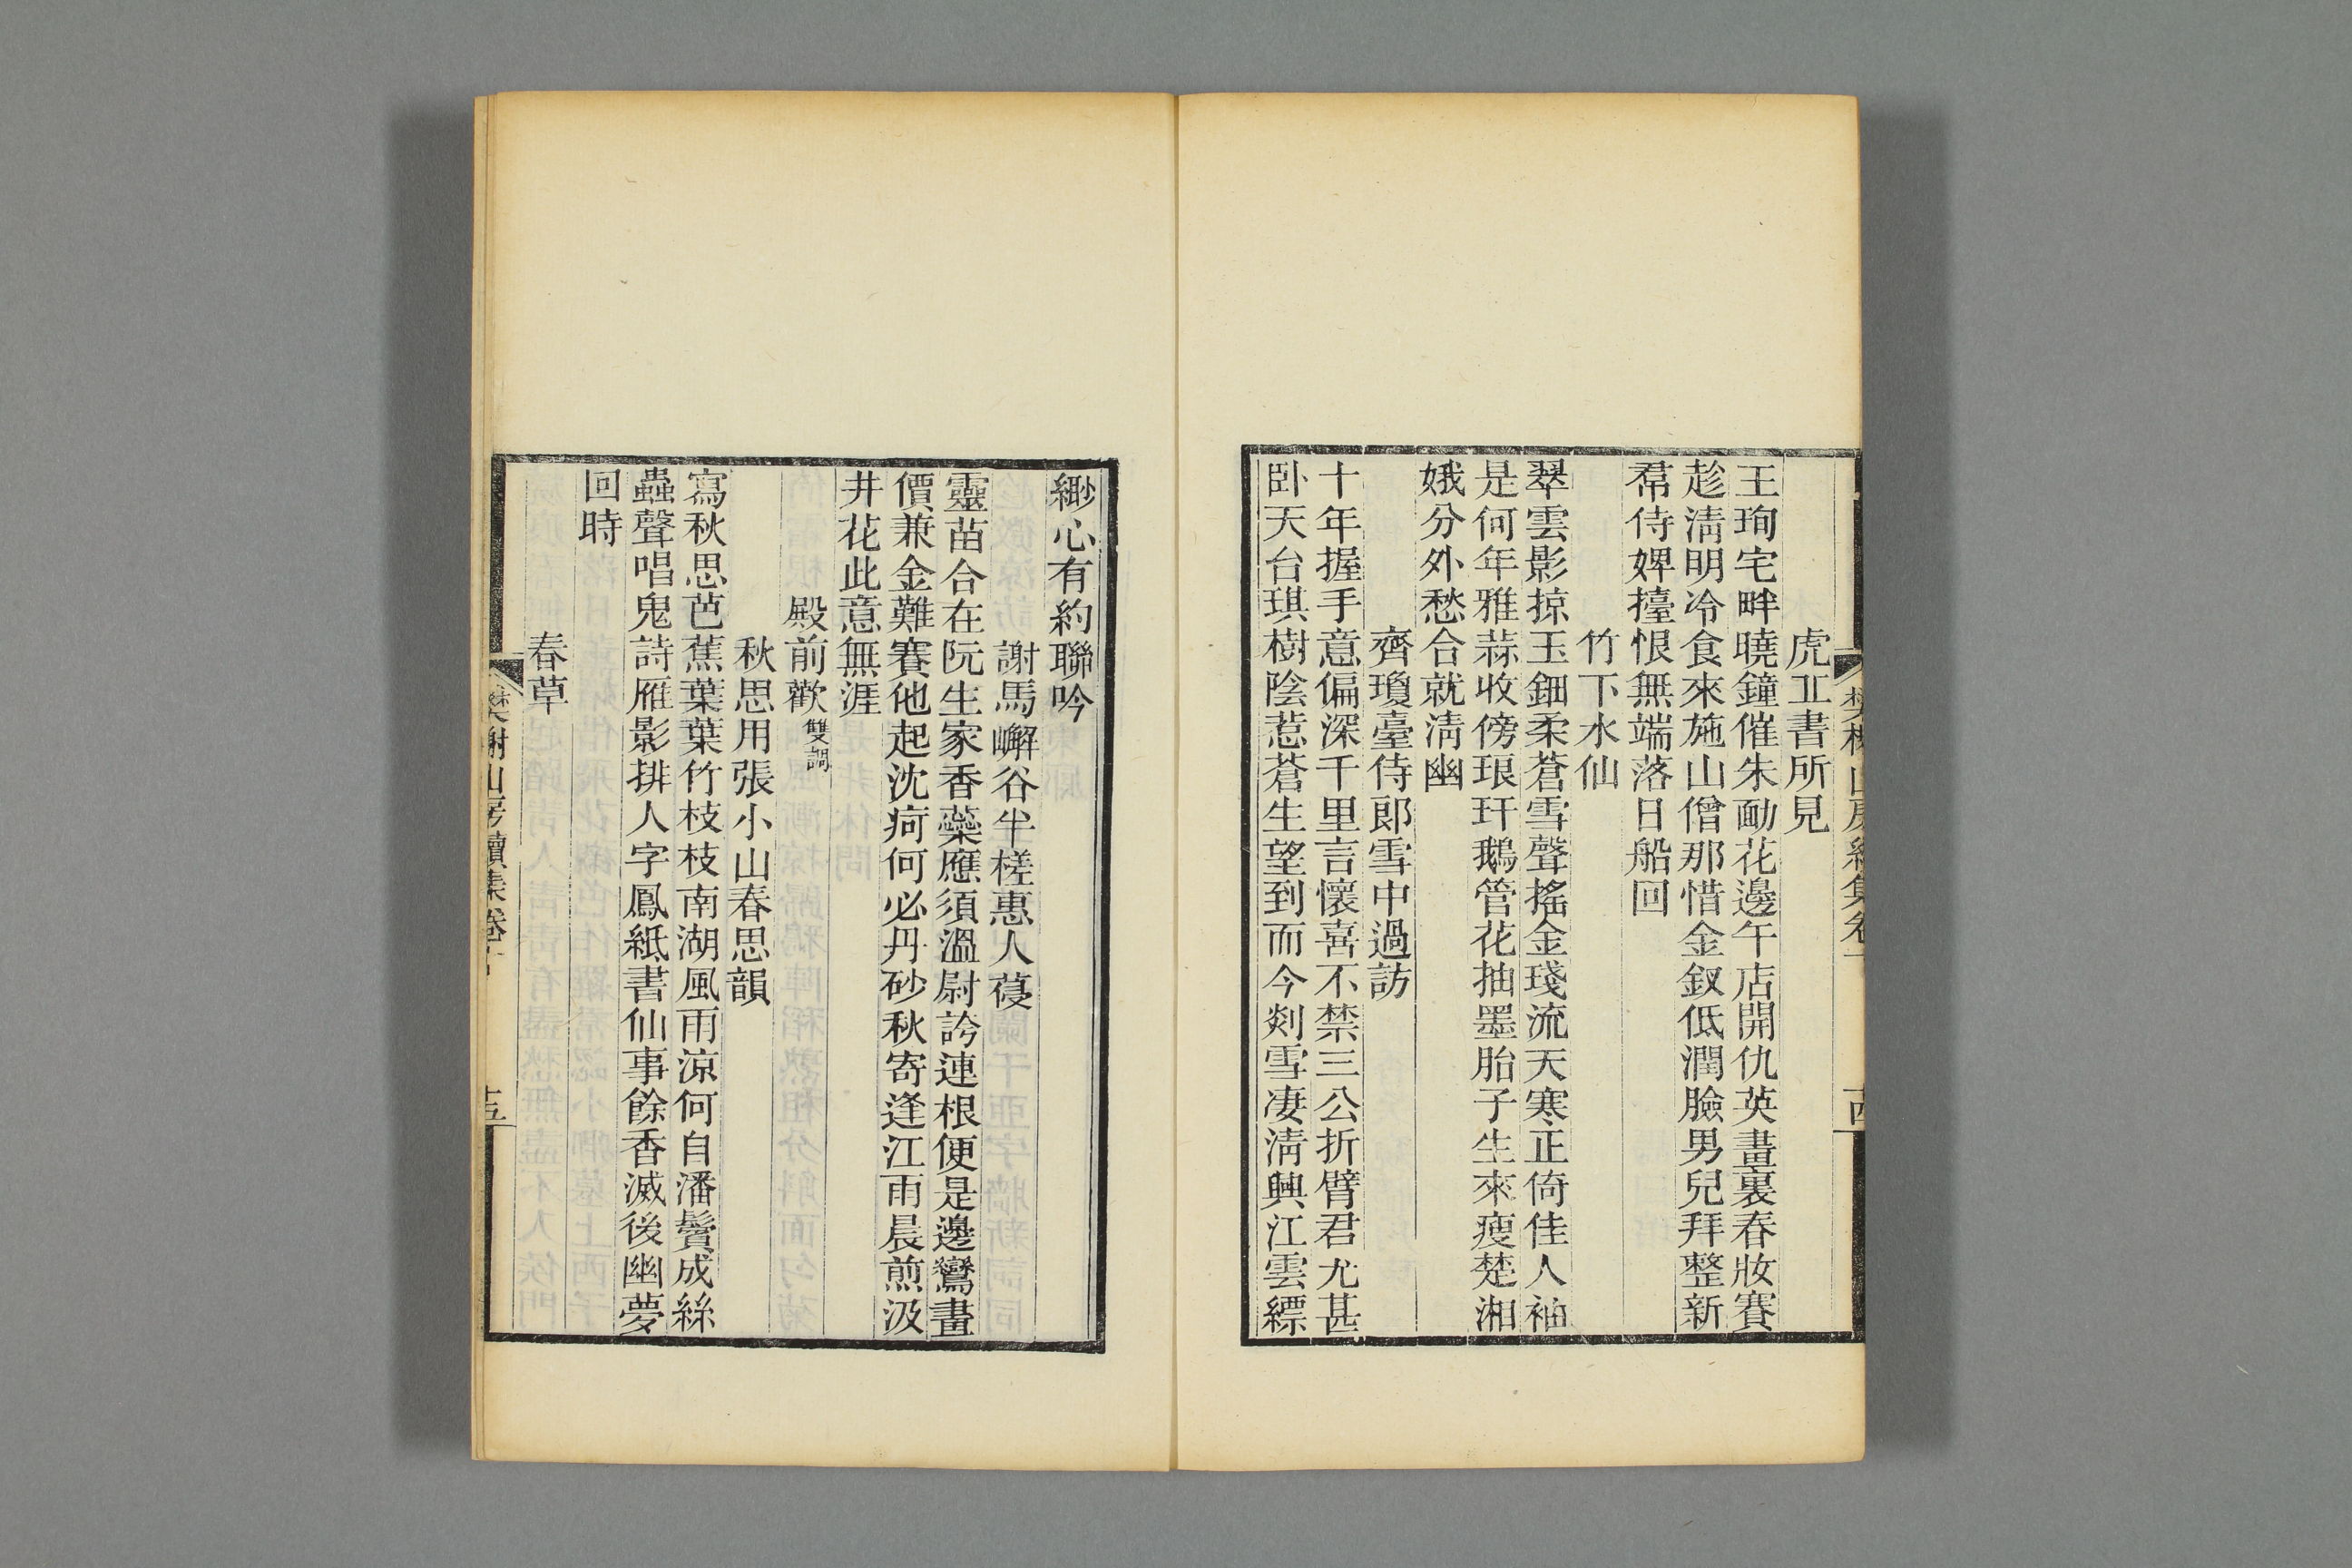 虎丠書所見
王珣宅畔曉鐘催朱勔花邊午店開仇英畫裏春妝賽
趁淸明冷食來施山僧那惜金釵低潤臉男兒拜整新
帬侍婢擡恨無端落日船回
竹下水仙
翠雲影掠玉鈿柔蒼雪聲搖金琖流天寒正倚佳人袖
是何年雅蒜收傍琅玕鵝管花抽墨胎子生來瘦楚湘
娥分外愁合就淸幽
齊瓊臺侍郎雪中過訪
十年握手意偏深千里言懷喜不禁三公折臂君尤甚
卧天台琪樹陰惹蒼生望到而今剡雪凄淸興江雲縹
緲心有約聯吟
謝馬嶰谷半槎惠人葠
靈苗合在阮生家香蘂應須溫尉誇連根便是邊鸞畫
價兼金難賽他起沈疴何必丹砂秋寄逢江雨晨煎汲
井花此意無涯
殿前歡雙調
秋思用張小山春思韻
寫秋思芭蕉葉葉竹枝枝南湖風雨涼何自潘鬢成絲
蟲聲唱鬼詩雁影排人字鳳紙書仙事餘香滅後幽夢
回時
春草
樊榭山房續集卷十
十五